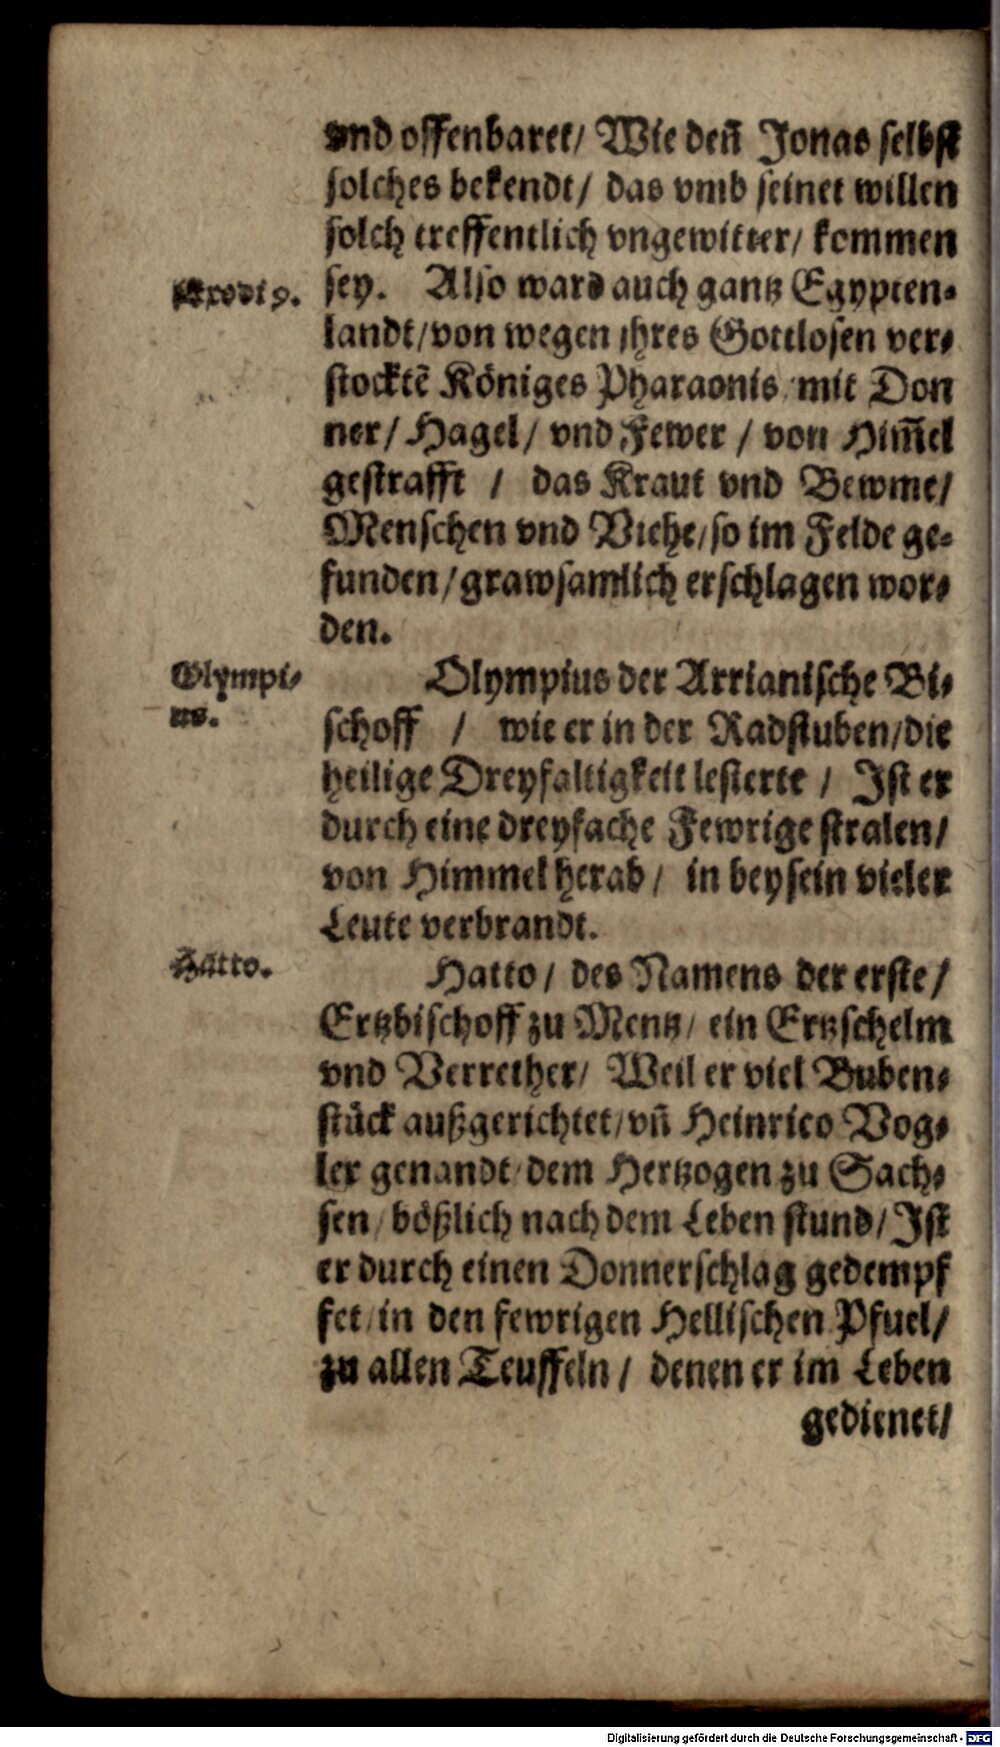 vnd offenbaret/ Wie deñ Jonas selbst
solches bekendt/ das vmb seinet willen
solch treffentlich vngewitter/ kommen
Exodi 9.
sey. Also ward auch gantz Egypten-
landt/von wegen ihres Gottlosen ver-
stocktē Königes Pharaonis/mit Don
ner/ Hagel/ vnd Fewer / von Him̃el
gestrafft / das Kraut vnd Bewme/
Menschen vnd Viehe/so im Felde ge-
funden/grawsamlich erschlagen wor-
den.
Olympi-
us.
Olympius der Arrianische Bi-
schoff / wie er in der Radstuben/die
heilige Dreyfaltigkeit lesterte / Ist er
durch eine dreyfache Fewrige stralen/
von Himmel herab/ in beysein vieler
Leute verbrandt.
Hatto.
Hatto/ des Namens der erste/
Ertzbischoff zu Mentz/ ein Ertzschelm
vnd Verrether/ Weil er viel Buben-
stück außgerichtet/vñ Heinrico Vog-
ler genandt/dem Hertzogen zu Sach-
sen/ bößlich nach dem Leben stund/Ist
er durch einen Donnerschlag gedempf
fet/in den fewrigen Hellischen Pfuel/
zu allen Teuffeln/ denen er im Leben
gedienet/
Digitalisierung gefördert durch die Deutsche Forschungsgemeinschaft - DFG